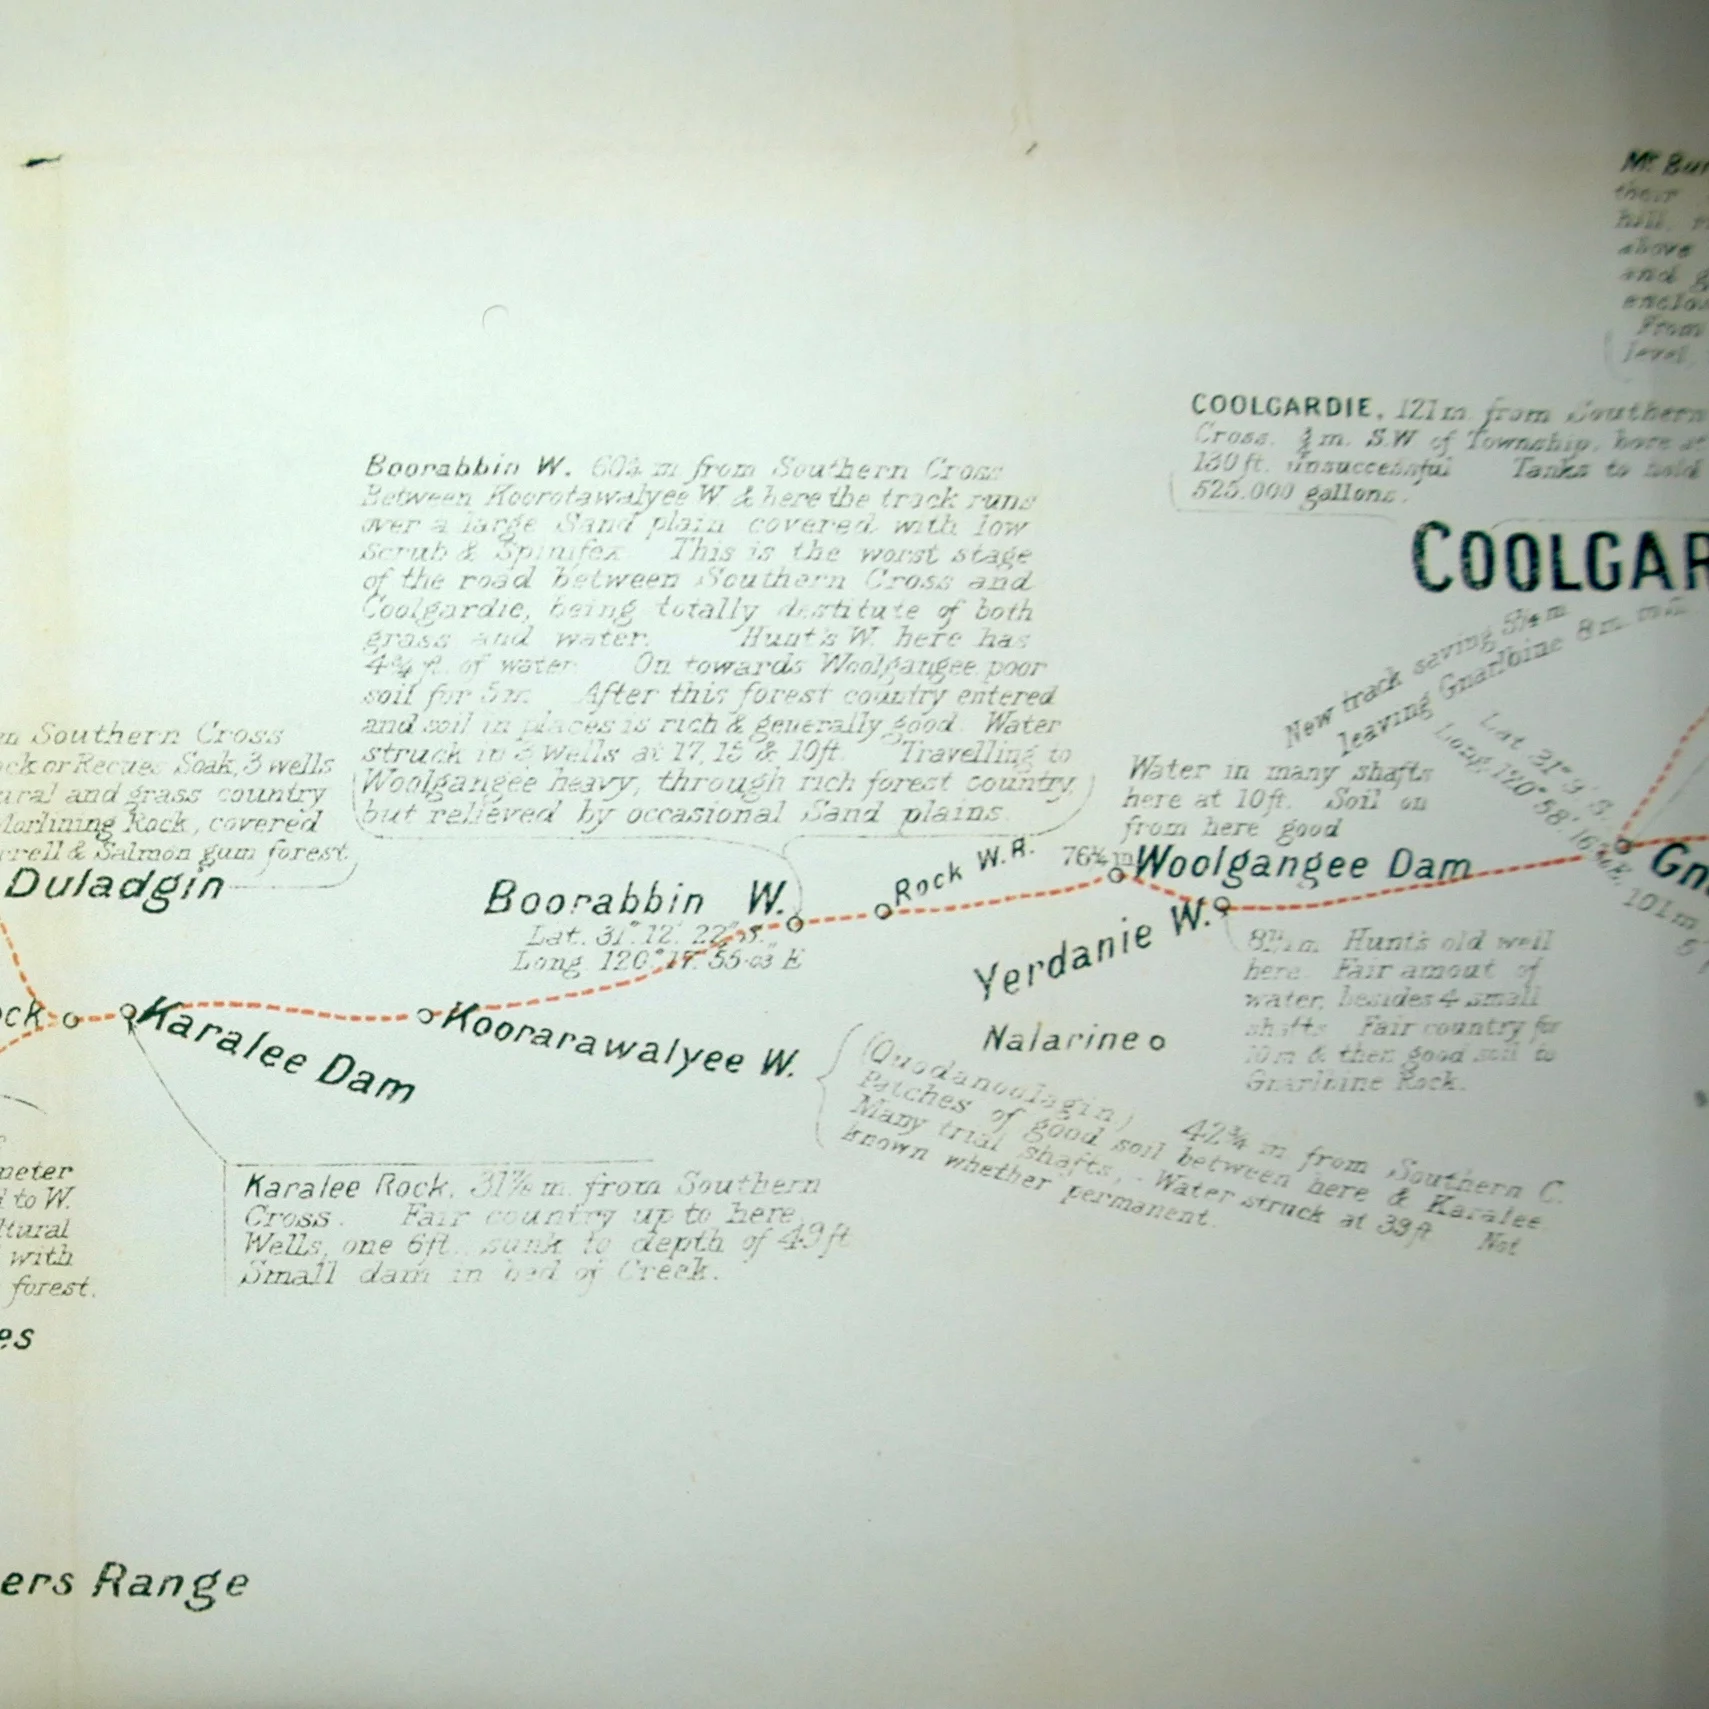 Mr. Bur
their
hill.
above
and g
enclo
From
level.
COOLGARDIE, 121m from Southern
Cross. ¾m. S.W of Township, bore at
130ft. unsuccessful Tanks to hold
525.000 gallons.
COOLGAR
New track saving 5¼m
leaving Gnarlbine 8m
Lat. 31° 9'. S.
Long. 120° 58'. E.
Boorabbin W. 60¾ m from Southern Cross
Between Koorotawalyee W & here the track runs
over a large Sand plain covered with low
Scrub & Spinifex This is the worst stage
of the road between Southern Cross and
Coolgardie, being totally destitute of both
grass and water. Hunt's W. here has
4¾ ft. of water On towards Woolgangee poor
soil for 5m. After this forest country entered
and soil in places is rich & generally good. Water
struck in 3 wells at 17, 15 & 10ft. Travelling to
Woolgangee heavy, through rich forest country,
but relieved by occasional Sand plains.
en Southern Cross
ock or Recues Soak, 3 wells
ural and grass country
Morlining Rock, covered
rrell & Salmon gum forest.
Duladgin
Water in many shafts
here at 10ft. Soil on
from here good
76¼m
Woolgangee Dam
Rock W.R.
Boorabbin W.
Lat. 31° 12'. 22" S.
Long. 120° 17'. 55·03 E
Gn
101m
Yerdanie W.
81½m Hunt's old well
here. Fair amout of
water, besides 4 small
shafts Fair country for
10m & then good soil to
Gnarlbine Rock.
ock
Karalee Dam
Koorarawalyee W.
Nalarine
(Quodanoolagin) 42¾ m from Southern C.
Patches of good soil between here & Karalee
Many trial shafts, Water struck at 39ft Not
known whether permanent.
Karalee Rock, 31⅞m from Southern
Cross. Fair country up to here
Wells, one 6ft. sunk to depth of 49ft
Small dam in bed of Creek.
meter
to W.
ltural
with
forest.
es
ers Range